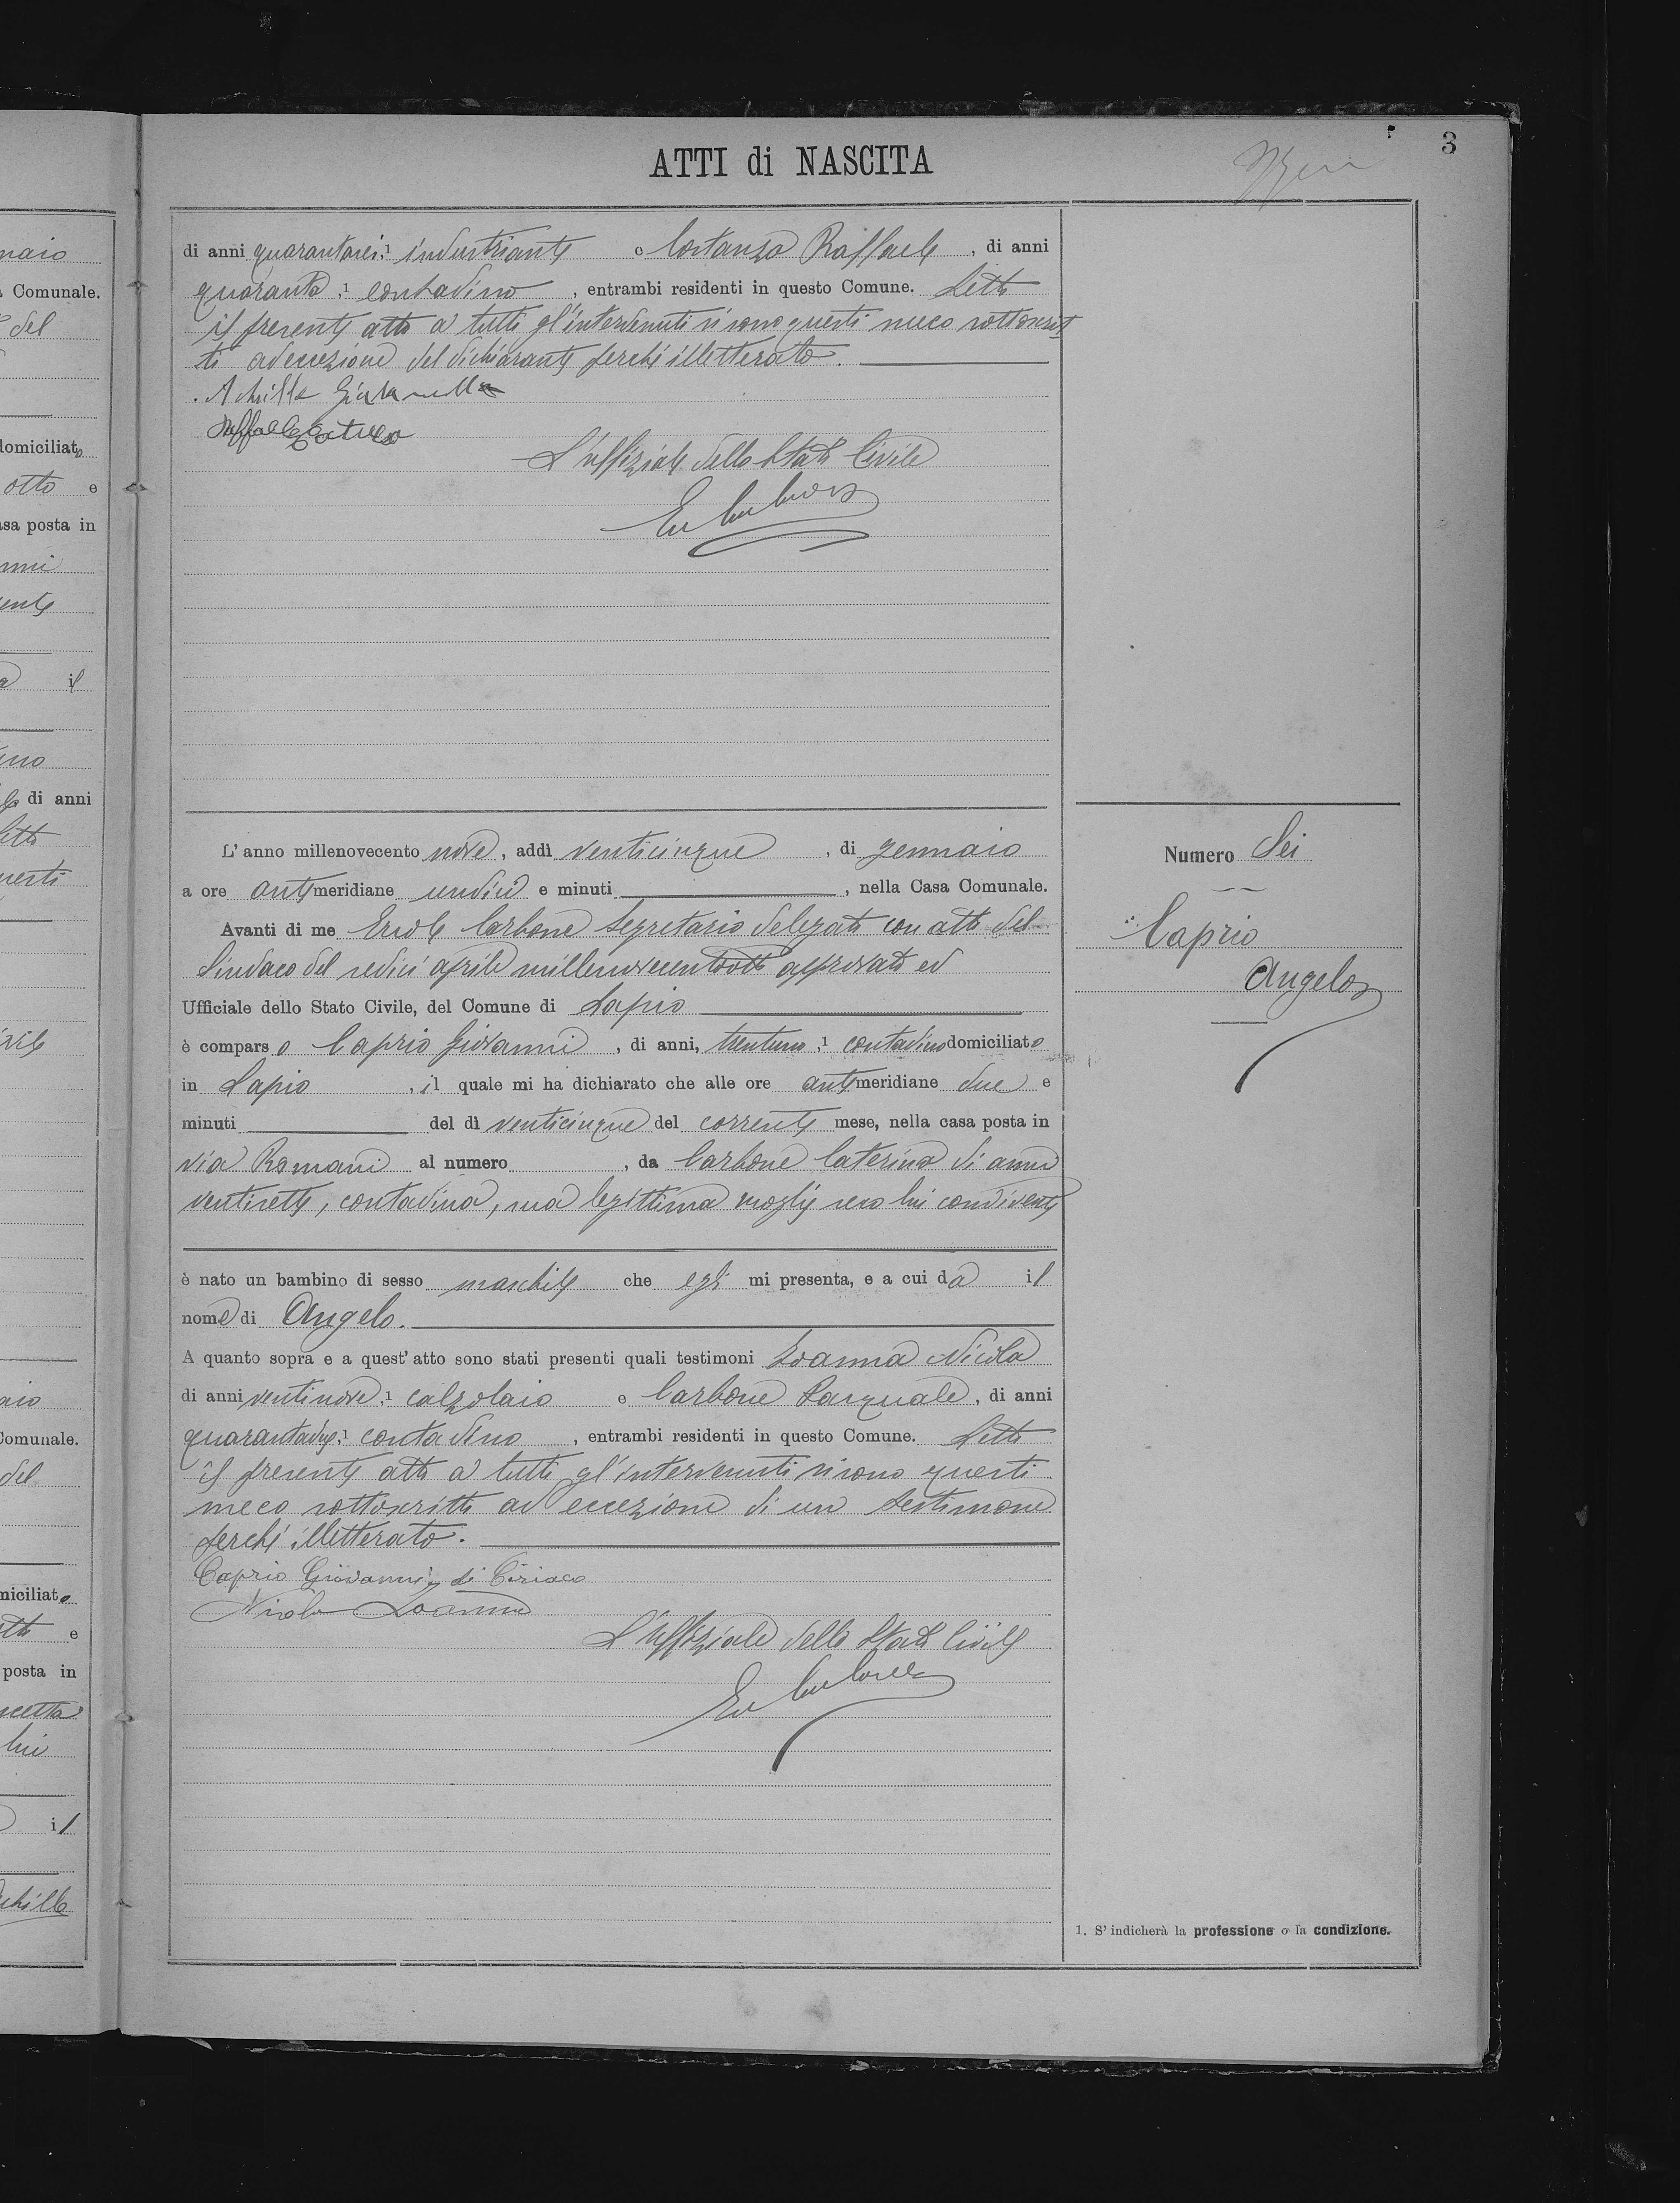 ATTI di NASCITA
3
di anni quarantasei, 1 industriante e Costanza Raffaele, di anni
quaranta, 1 contadino, entrambi residenti in questo Comune. Letto
il presente atto a tutti gl'intervenuti si sono questi meco sottoscrit
ti ad eccezione del dichiarante perché illetterato.
Achille
Raffaele
L'uffiziale dello Stato Civile
L'anno millenovecento nove, addì venticinque, di gennaio
a ore antimeridiane undici e minuti, nella Casa Comunale.
Avanti di me Ercole Carbone Segretario delegato con atto del
Sindaco del sedici aprile millenovecentootto approvato ed
Ufficiale dello Stato Civile, del Comune di Lapio
è comparso Caprio Giovanni, di anni, trentuno, 1 contadino domiciliato
in Lapio, il quale mi ha dichiarato che alle ore antimeridiane due e
minuti del dì venticinque del corrente mese, nella casa posta in
via Romani al numero, da Carbone Caterina di anni
ventisette, contadina, sua legittima moglie seco lui convivente
è nato un bambino di sesso maschile che egli mi presenta, e a cui dà il
nome di Angelo.
A quanto sopra e a quest'atto sono stati presenti quali testimoni Loanna Nicola
di anni ventinove, 1 calzolaio e Carbone Pasquale, di anni
quarantadue, 1 contadino, entrambi residenti in questo Comune. Letto
il presente atto a tutti gl'intervenuti si sono questi
meco sottoscritti ad eccezione di un testimone
perché illetterato.
Caprio Giovanni di Ciriaco
Nicola Loanna
L'Uffiziale dello Stato Civile
Numero Sei
Caprio
Angelo
1. S'indicherà la professione o la condizione.
naio
a Comunale.
del
domiciliato
otto e
asa posta in
nni
ente
a il
uno
di anni
etto
uesti
ivile
aio
Comunale.
del
miciliato
e
posta in
ncetta
lui
il
chille